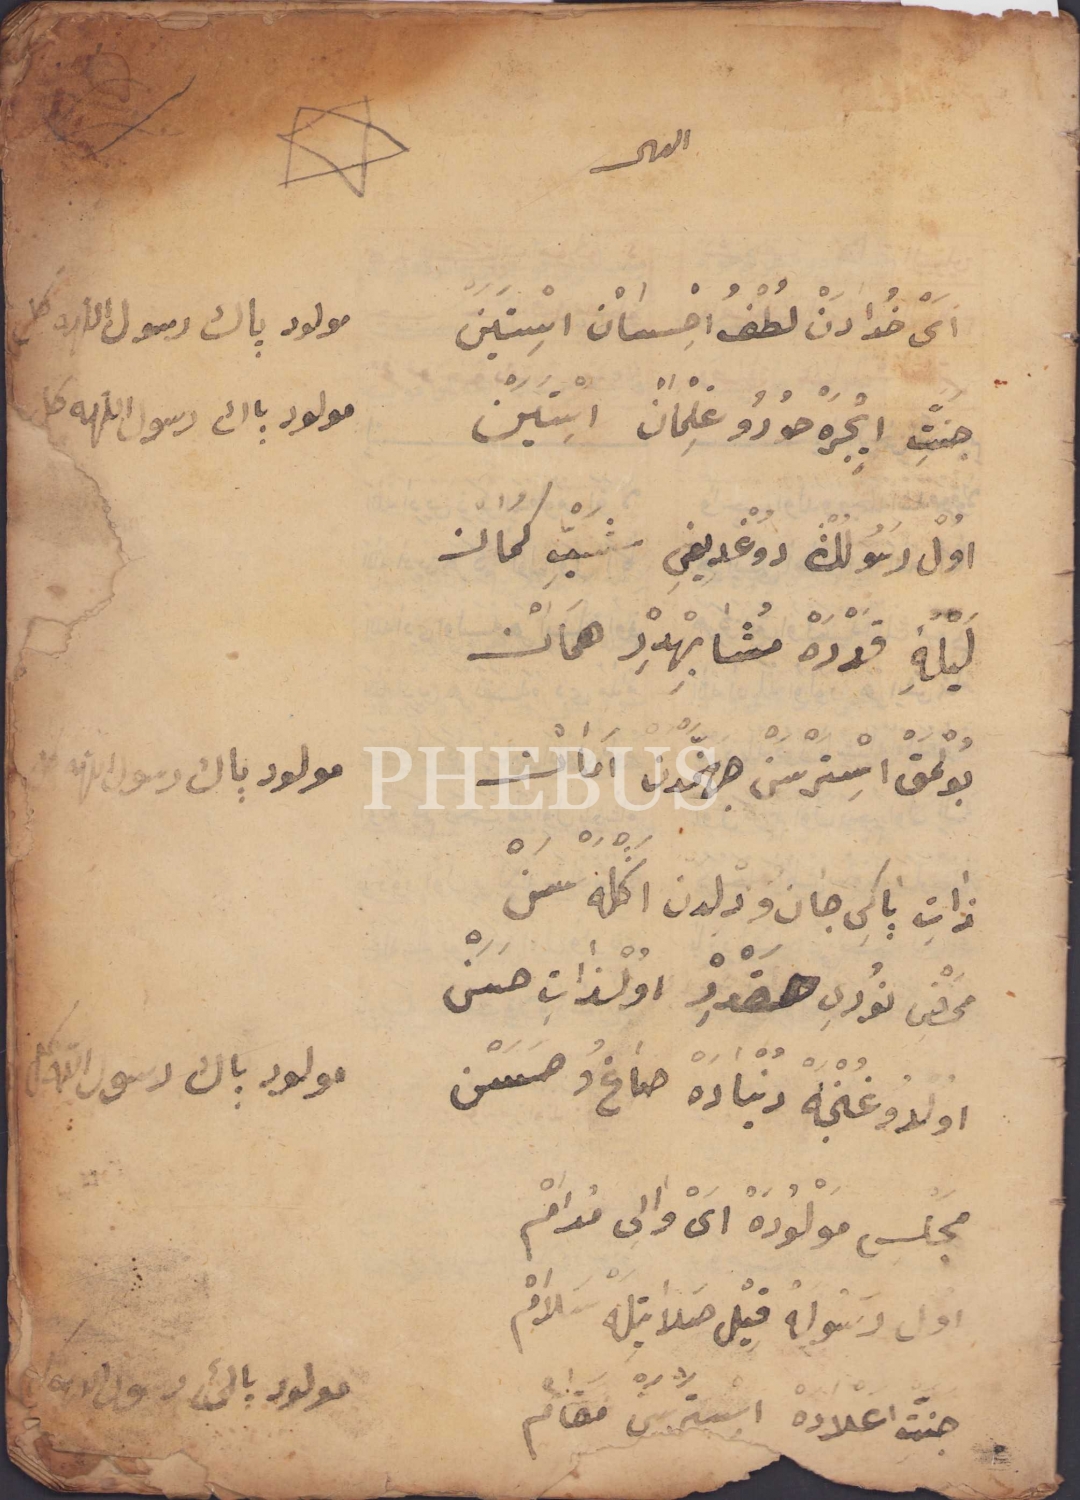 الهى
اَىْ خُدَادَنْ لُطْفُ اِحْسَانْ اِسْتَيَنْ مولود پاك رسول اللهه
جنّتِ ايچره حورُ و غِلْمَانْ اِسْتَيَنْ مولود پاك رسول اللهه
اول رسولڭ دوغديغى شبّ كمان
لَيْلَهِٔ قدره مشابهدر همان
بولمق استرسن جهنّمدن امان مولود پاك رسول اللهه
PHEBUS
ذاتِ پاكى جان و دلدن اڭله سن
محض نورِ حقدر اول ذات حسن
اولدو غنجه دنياده صاغ و حسن مولود پاك رسول
مجلس مولوده اى والى مدام
اول رسوله قيل صلاتيله سلام
جنّت اعلاده استرسن مقام مولود پاك رسول